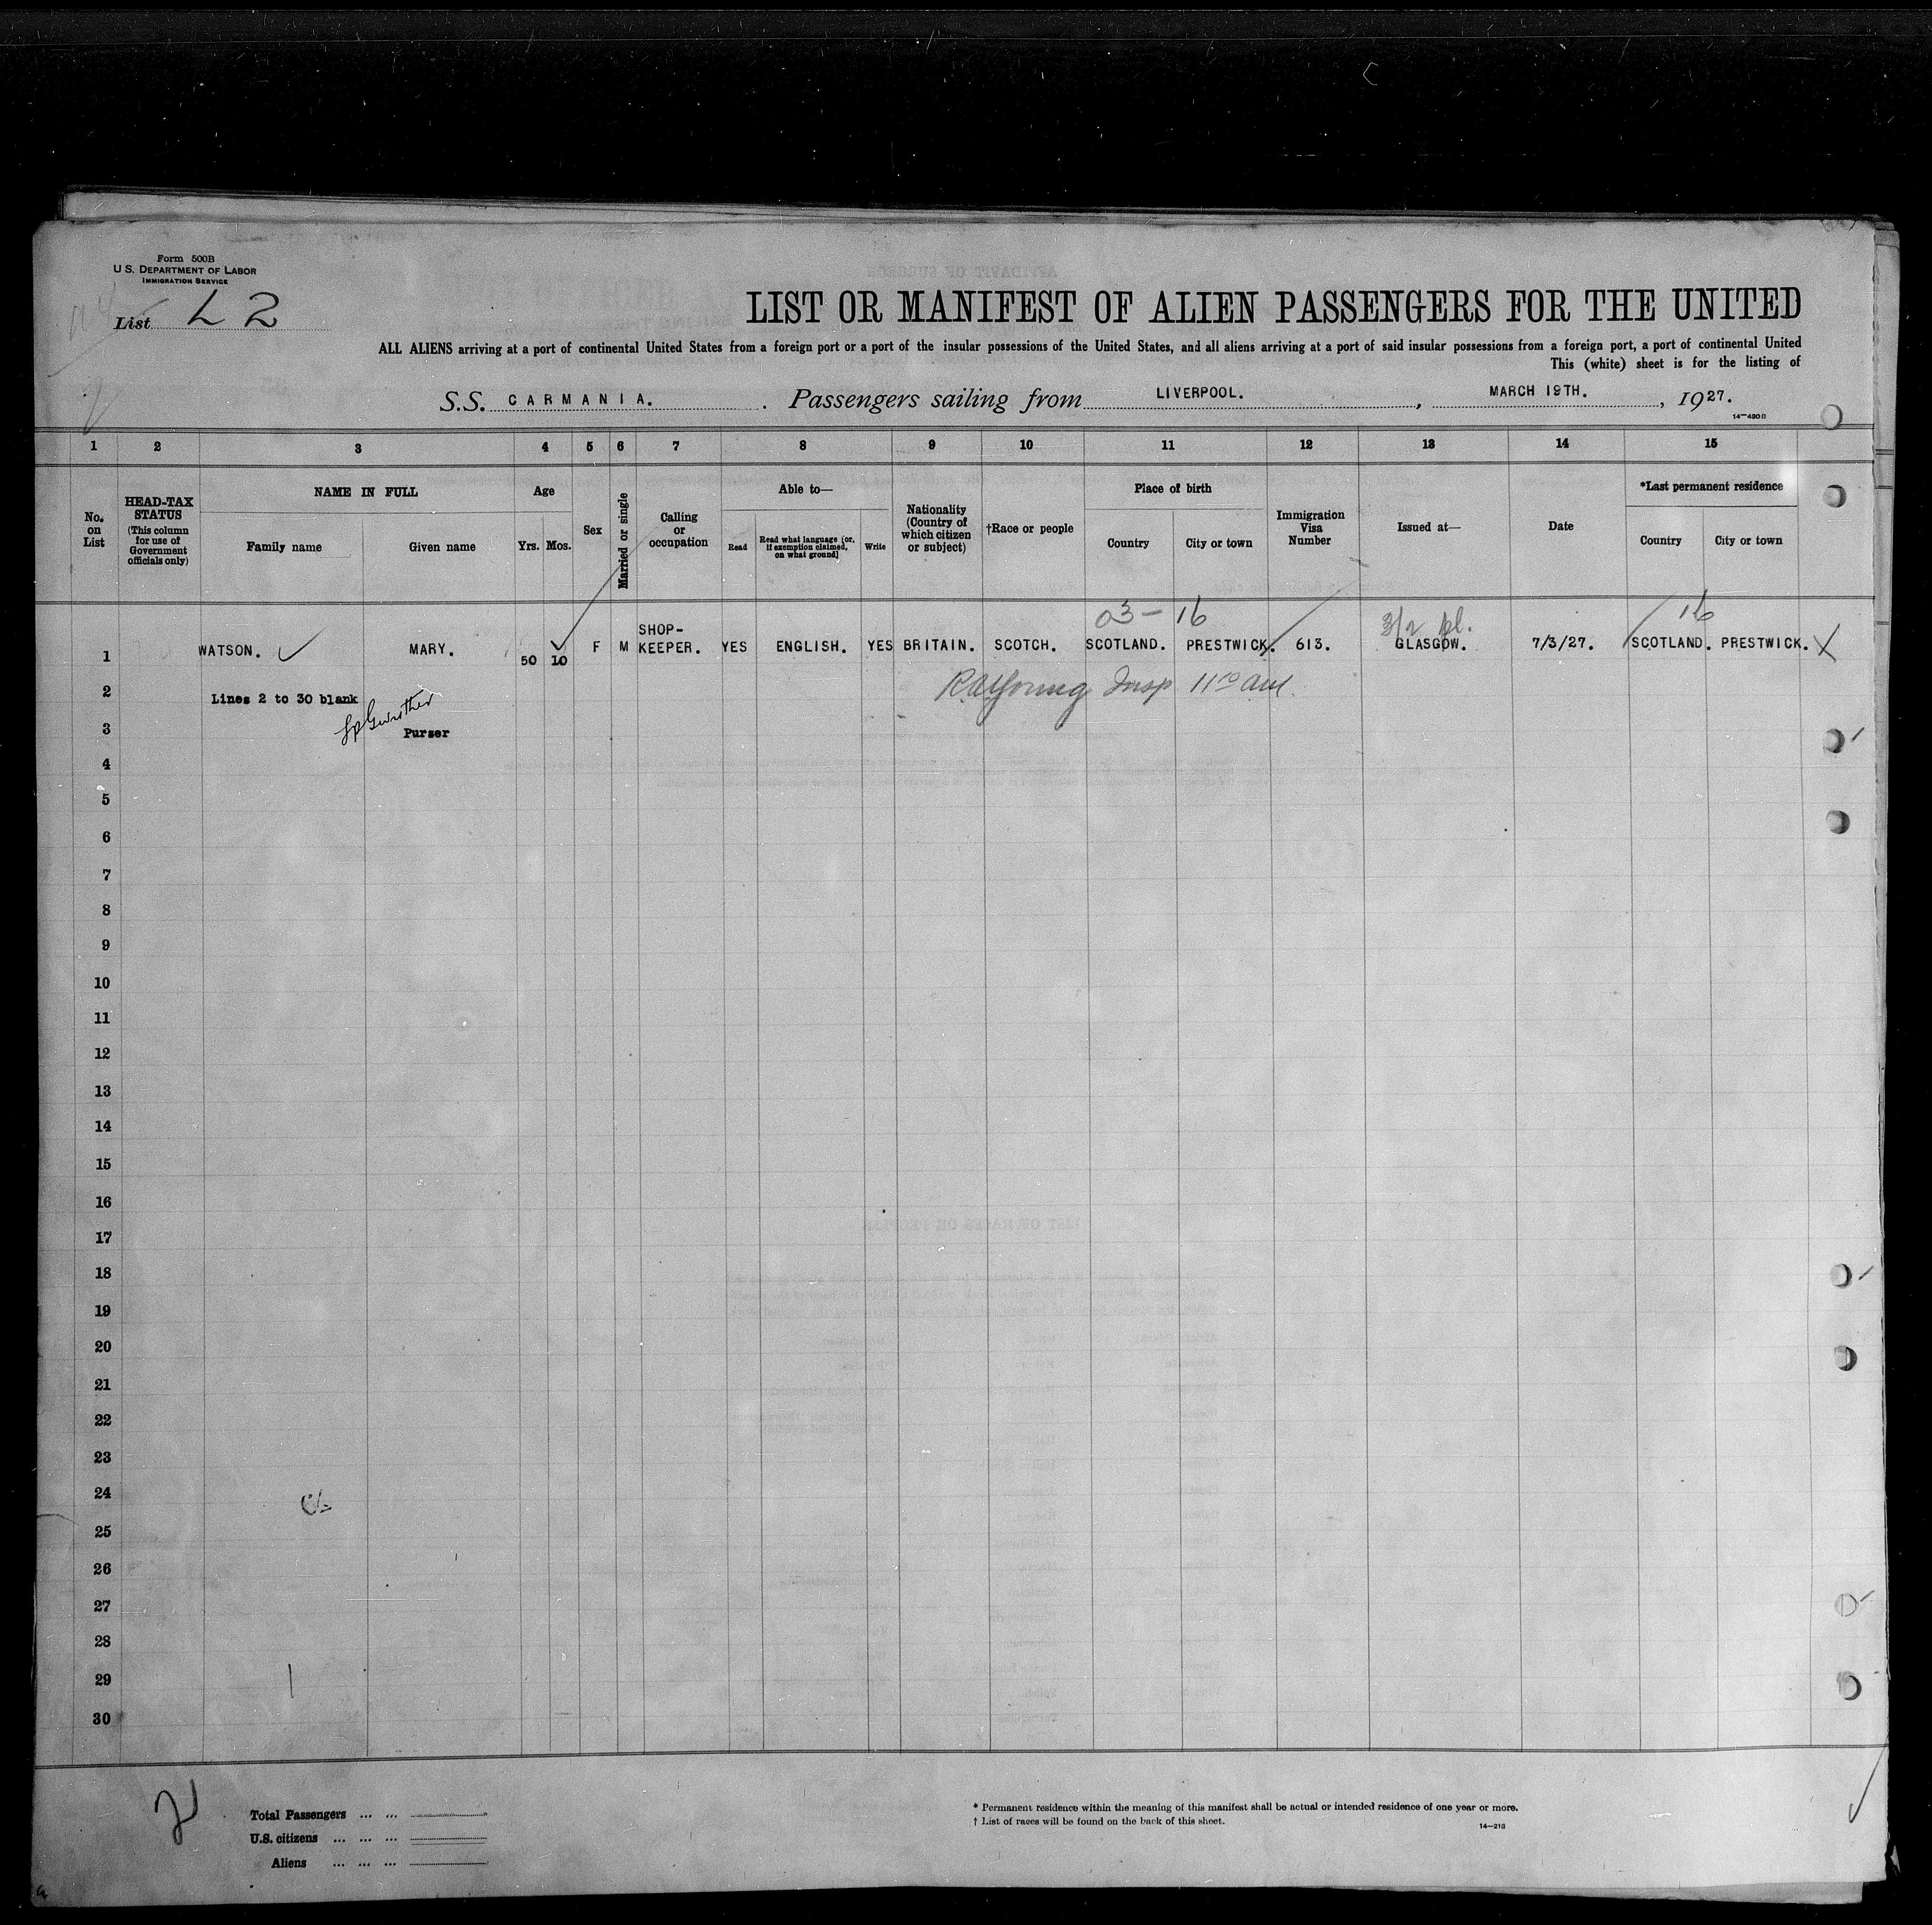 Form 500B
U S. DEPARTMENT OF LABOR
IMMIGRATION SERVICE
List L 2
LIST OR MANIFEST OF ALIEN PASSENGERS FOR THE UNITED
ALL ALIENS arriving at a port of continental United States from a foreign port or a port of the insular possessions of the United States, and all aliens arriving at a port of said insular possessions from a foreign port, a port of continental United
This (white) sheet is for the listing of
S.S. CARMANIA. Passengers sailing from LIVERPOOL. , MARCH 19TH. , 1927.
14—430B
1 2 3 4 5 6 7 8 9 10 11 12 13 14 15
No. on List
HEAD-TAX STATUS (This column for use of Government officials only)
NAME IN FULL
Family name Given name
Age
Yrs. Mos.
Sex
Married or single
Calling or occupation
Able to—
Read
Read what language [or, if exemption claimed, on what ground]
Write
Nationality (Country of which citizen or subject)
†Race or people
Place of birth
Country City or town
Immigration Visa Number
Issued at—
Date
*Last permanent residence
Country City or town
03 - 16 16
1 WATSON. MARY. 50 10 F M SHOP-KEEPER. YES ENGLISH. YES BRITAIN. SCOTCH. SCOTLAND. PRESTWICK. 613. GLASGOW. 7/3/27. SCOTLAND. PRESTWICK. X
2 Lines 2 to 30 blank
3 Purser
4
5
6
7
8
9
10
11
12
13
14
15
16
17
18
19
20
21
22
23
24
25
26
27
28
29
30
Total Passengers ... ...
U.S. citizens ... ... ...
Aliens ... ... ...
* Permanent residence within the meaning of this manifest shall be actual or intended residence of one year or more.
† List of races will be found on the back of this sheet.
14—213